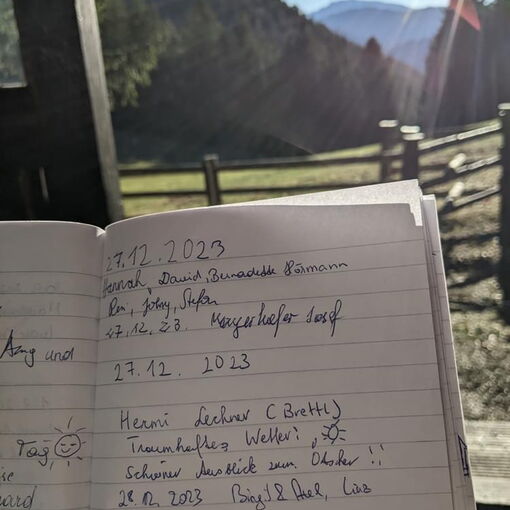 Amg und
Tag
27.12.2023
Hannah, David, Bernadette Hörmann
Reni, Johny, Stefan
27.12.23. Mayerhofer Josef
27.12. 2023
Hermi Lechner (Brettl)
Traumhaftes Wetter!
Schöner Ausblick zum Ötscher!!
28.12.2023 Birgit & Axel, Linz